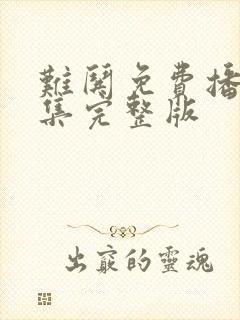 難閱免費播
集完整版
出竅的靈魂